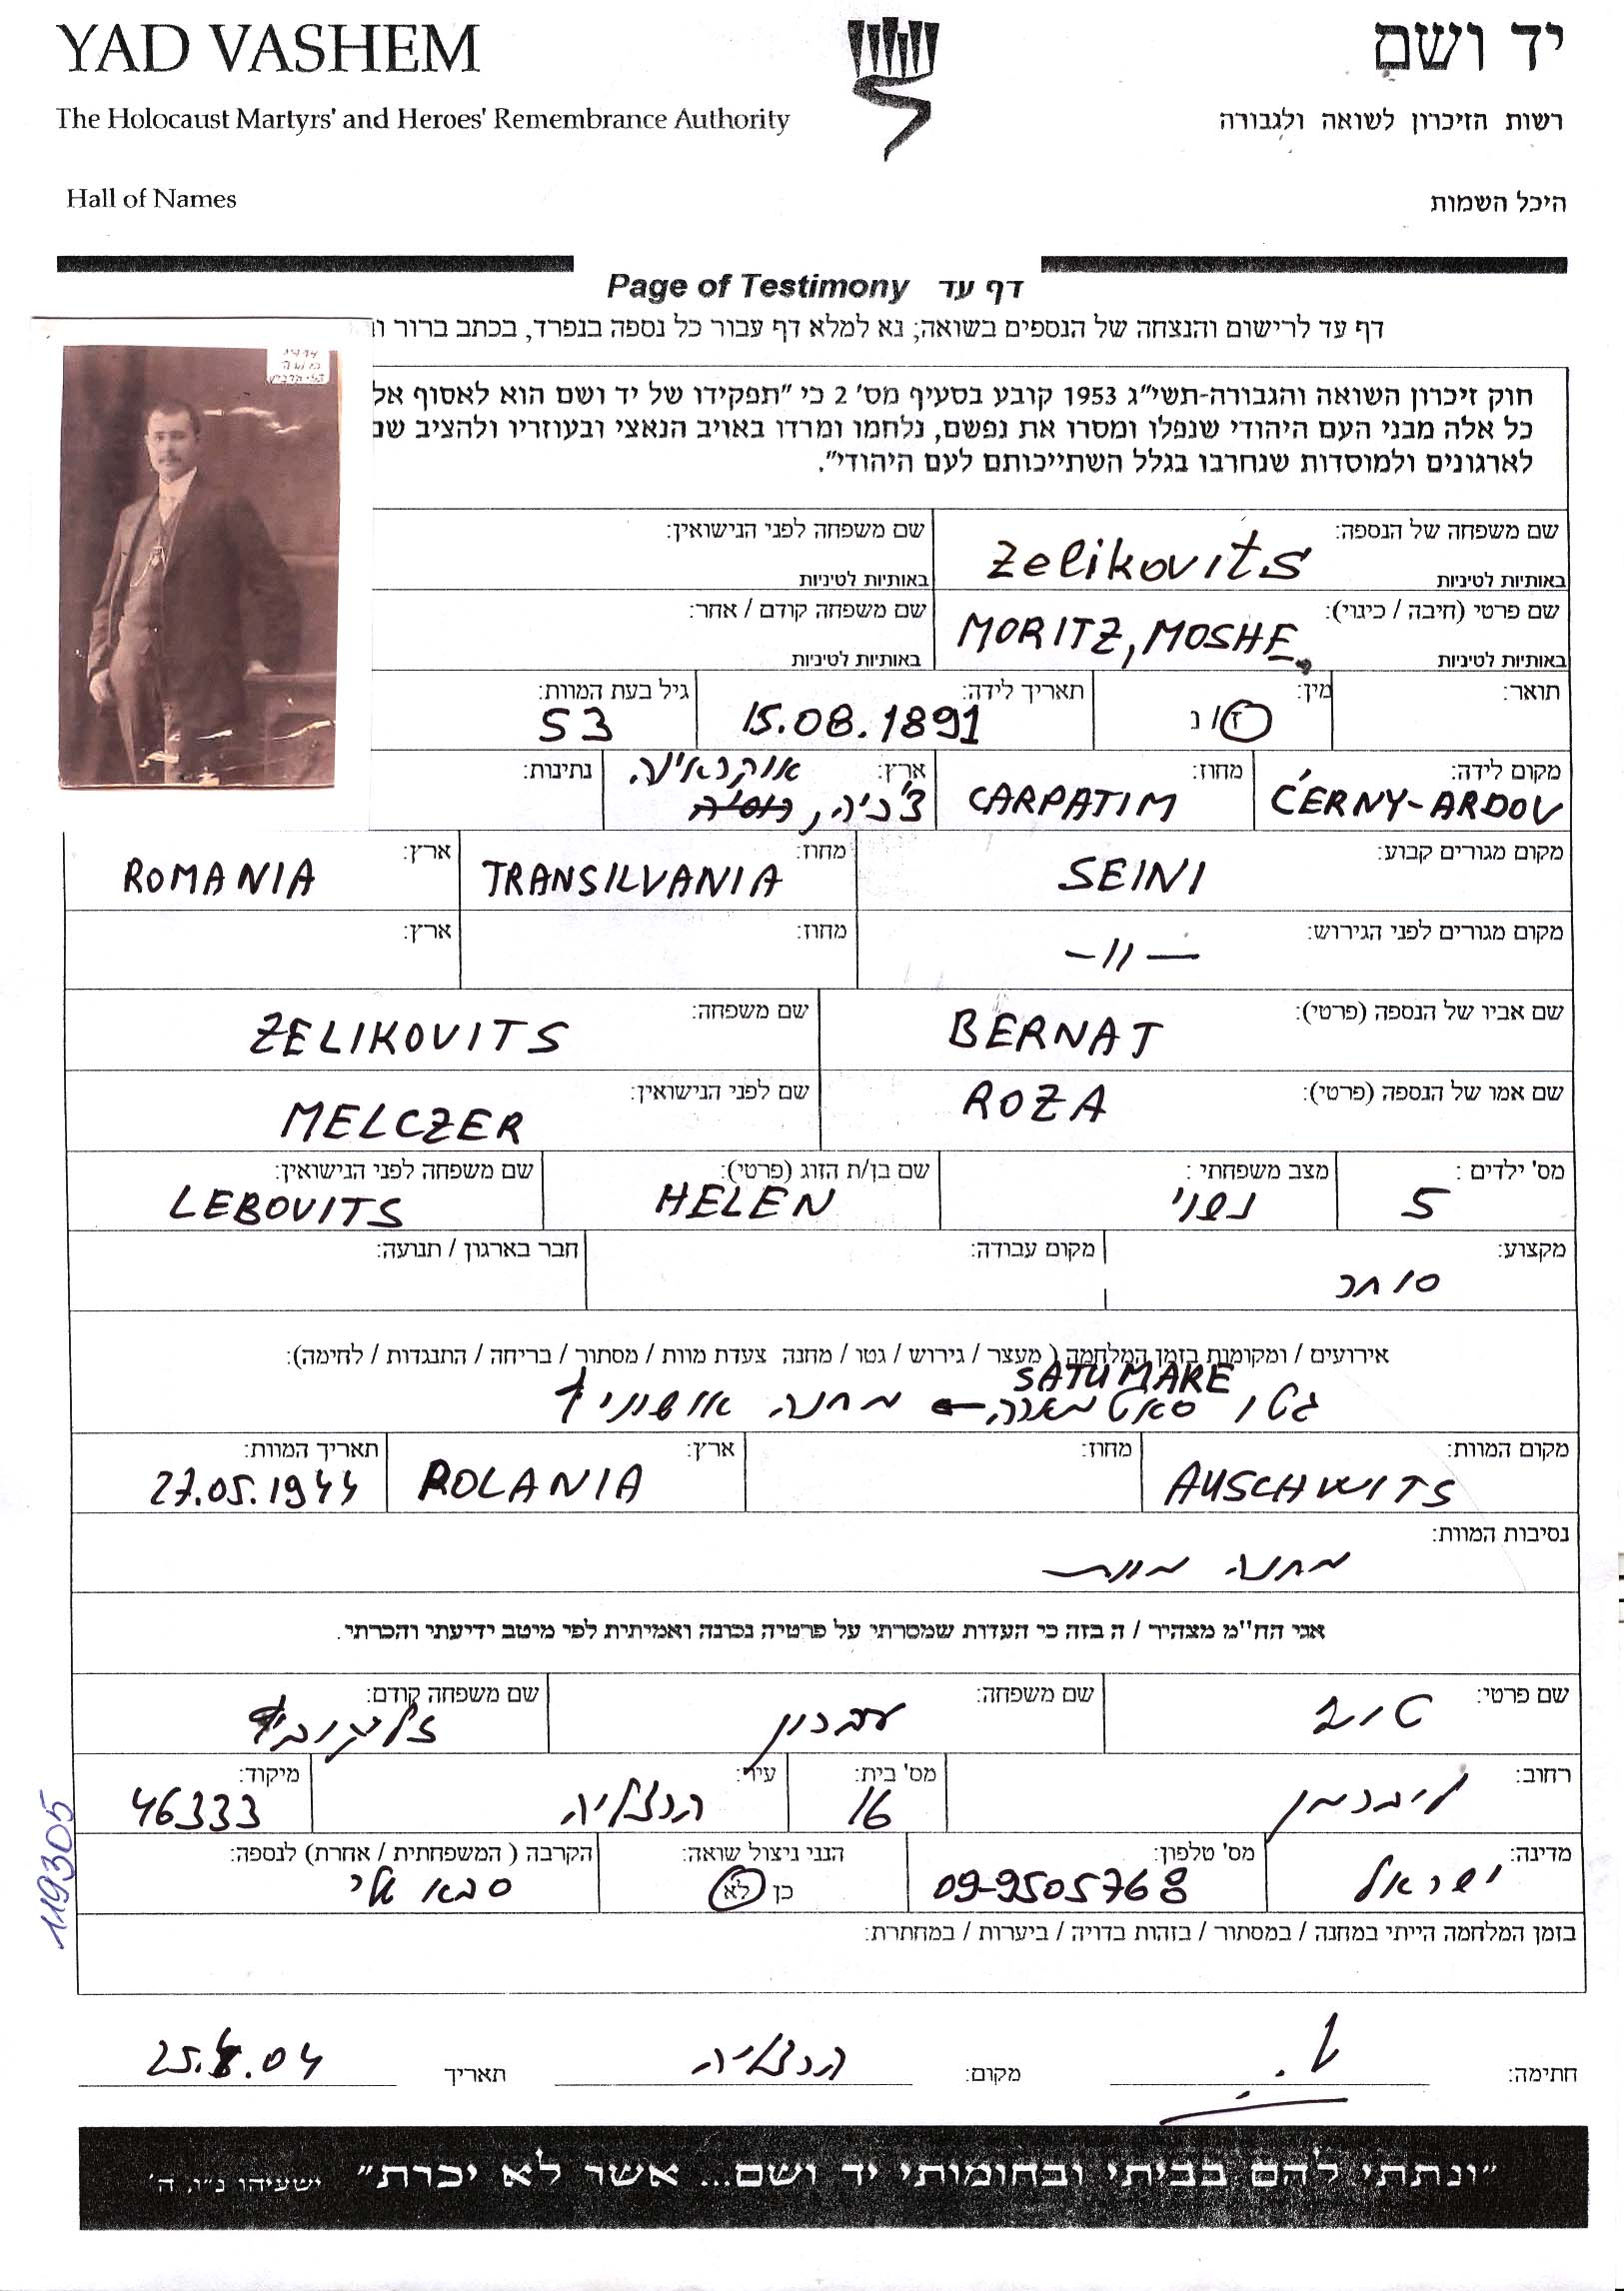 YAD VASHEM
יד ושם
The Holocaust Martyrs' and Heroes' Remembrance Authority
רשות הזיכרון לשואה ולגבורה
Hall of Names
היכל השמות
Page of Testimony דף עד
דף עד לרישום והנצחה של הנספים בשואה; נא למלא דף עבור כל נספה בנפרד, בכתב ברור
חוק זיכרון השואה והגבורה-תשי"ג 1953 קובע בסעיף מס' 2 כי "תפקידו של יד ושם הוא לאסוף אל
כל אלה מבני העם היהודי שנפלו ומסרו את נפשם, נלחמו ומרדו באויב הנאצי ובעוזריו ולהציב שם
לארגונים ולמוסדות שנחרבו בגלל השתייכותם לעם היהודי".
שם משפחה של הנספה: Zelikovits באותיות לטיניות
שם משפחה לפני הנישואין: באותיות לטיניות
שם פרטי (חיבה / כינוי): MORITZ, MOSHE באותיות לטיניות
שם משפחה קודם / אחר: באותיות לטיניות
תואר:
מין: ז / נ
תאריך לידה: 15.08.1891
גיל בעת המוות: 53
מקום לידה: ČERNY-ARDOV
מחוז: CARPATIM
ארץ: אוקראינה
צ'כיה, רוסיה
נתינות:
מקום מגורים קבוע: SEINI
מחוז: TRANSILVANIA
ארץ: ROMANIA
מקום מגורים לפני הגירוש: —11—
מחוז:
ארץ:
שם אביו של הנספה (פרטי): BERNAT
שם משפחה: ZELIKOVITS
שם אמו של הנספה (פרטי): ROZA
שם לפני הנישואין: MELCZER
מס' ילדים: 5
מצב משפחתי: נשוי
שם בן/ת הזוג (פרטי): HELEN
שם משפחה לפני הנישואין: LEBOVITS
מקצוע: סוחר
מקום עבודה:
חבר בארגון / תנועה:
אירועים / ומקומות בזמן המלחמה ( מעצר / גירוש / גטו / מחנה צעדת מוות / מסתור / בריחה / התנגדות / לחימה):
SATU MARE
גטו סאטמארה ← מחנה אושוויץ
מקום המוות: AUSCHWITS
מחוז:
ארץ: POLANIA
תאריך המוות: 27.05.1944
נסיבות המוות:
מחנה מוות
אני הח"מ מצהיר / ה בזה כי העדות שמסרתי על פרטיה נכונה ואמיתית לפי מיטב ידיעתי והכרתי.
שם פרטי: טוב
שם משפחה: עברון
שם משפחה קודם: זליקוביץ
רחוב: ליברמן
מס' בית: 16
עיר: הרצליה
מיקוד: 46333
מדינה: ישראל
מס' טלפון: 09-9505768
הנני ניצול שואה: כן לא
הקרבה ( המשפחתית / אחרת) לנספה: סבא שלי
בזמן המלחמה הייתי במחנה / במסתור / בזהות בדויה / ביערות / במחתרת:
119305
חתימה:
מקום: הרצליה
תאריך
"ונתתי להם בביתי ובחומותי יד ושם... אשר לא יכרת" ישעיהו נ"ו, ה'